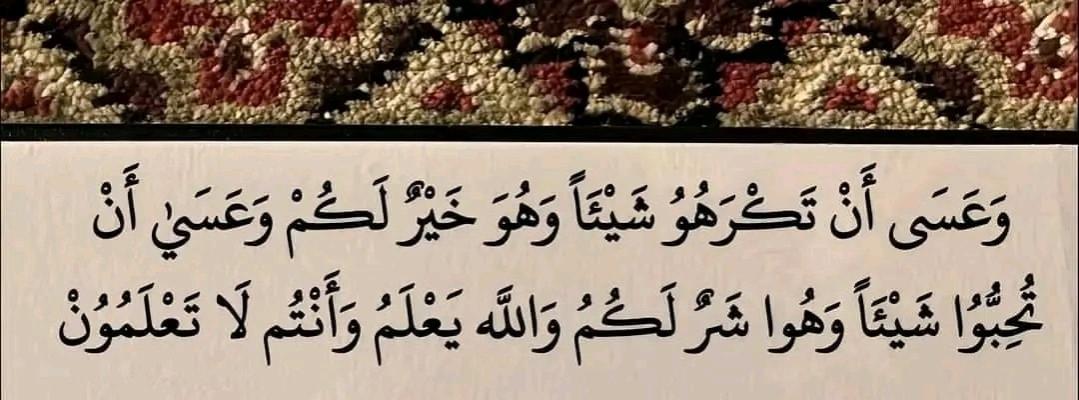 وَعَسَى أَنْ تَكْرَهُوُ شَيْئَاً وَهُوَ خَيْرٌ لَكُمْ وَعَسَيٰ أَنْ
تُحِبُّوُا شَيْئَاً وَهُوا شَرٌ لَكُمُ وَاللَّه يَعْلَمُ وَأَنْتُم لَا تَعْلَمُوُنْ